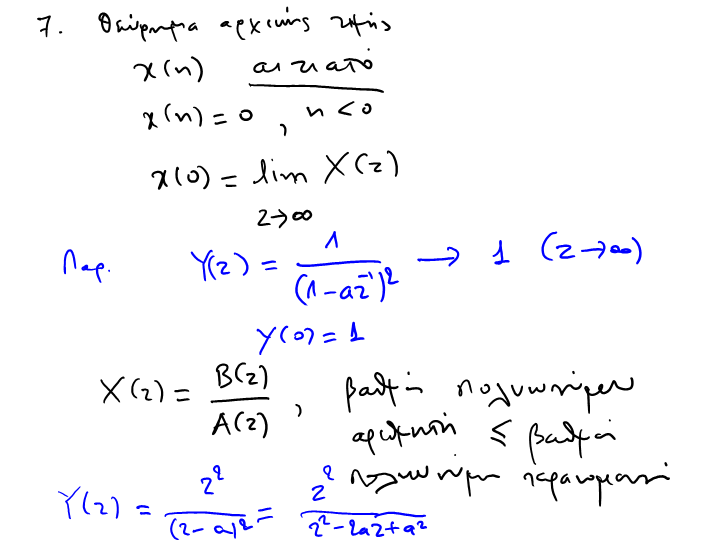 7. Θεώρημα αρχικής τιμής
x(n) αιτιατό
x(n) = 0 , n < 0
x(0) = lim X(z)
z→∞
Παρ. Y(z) = 1/(1-az⁻¹)² → 1 (z→∞)
y(0) = 1
X(z) = B(z)/A(z) , βαθμοί πολυωνύμου
αριθμητή ≤ βαθμοί
πολυωνύμου παρανομαστή
Y(z) = z²/(z-a)² = z²/(z²-2az+a²)